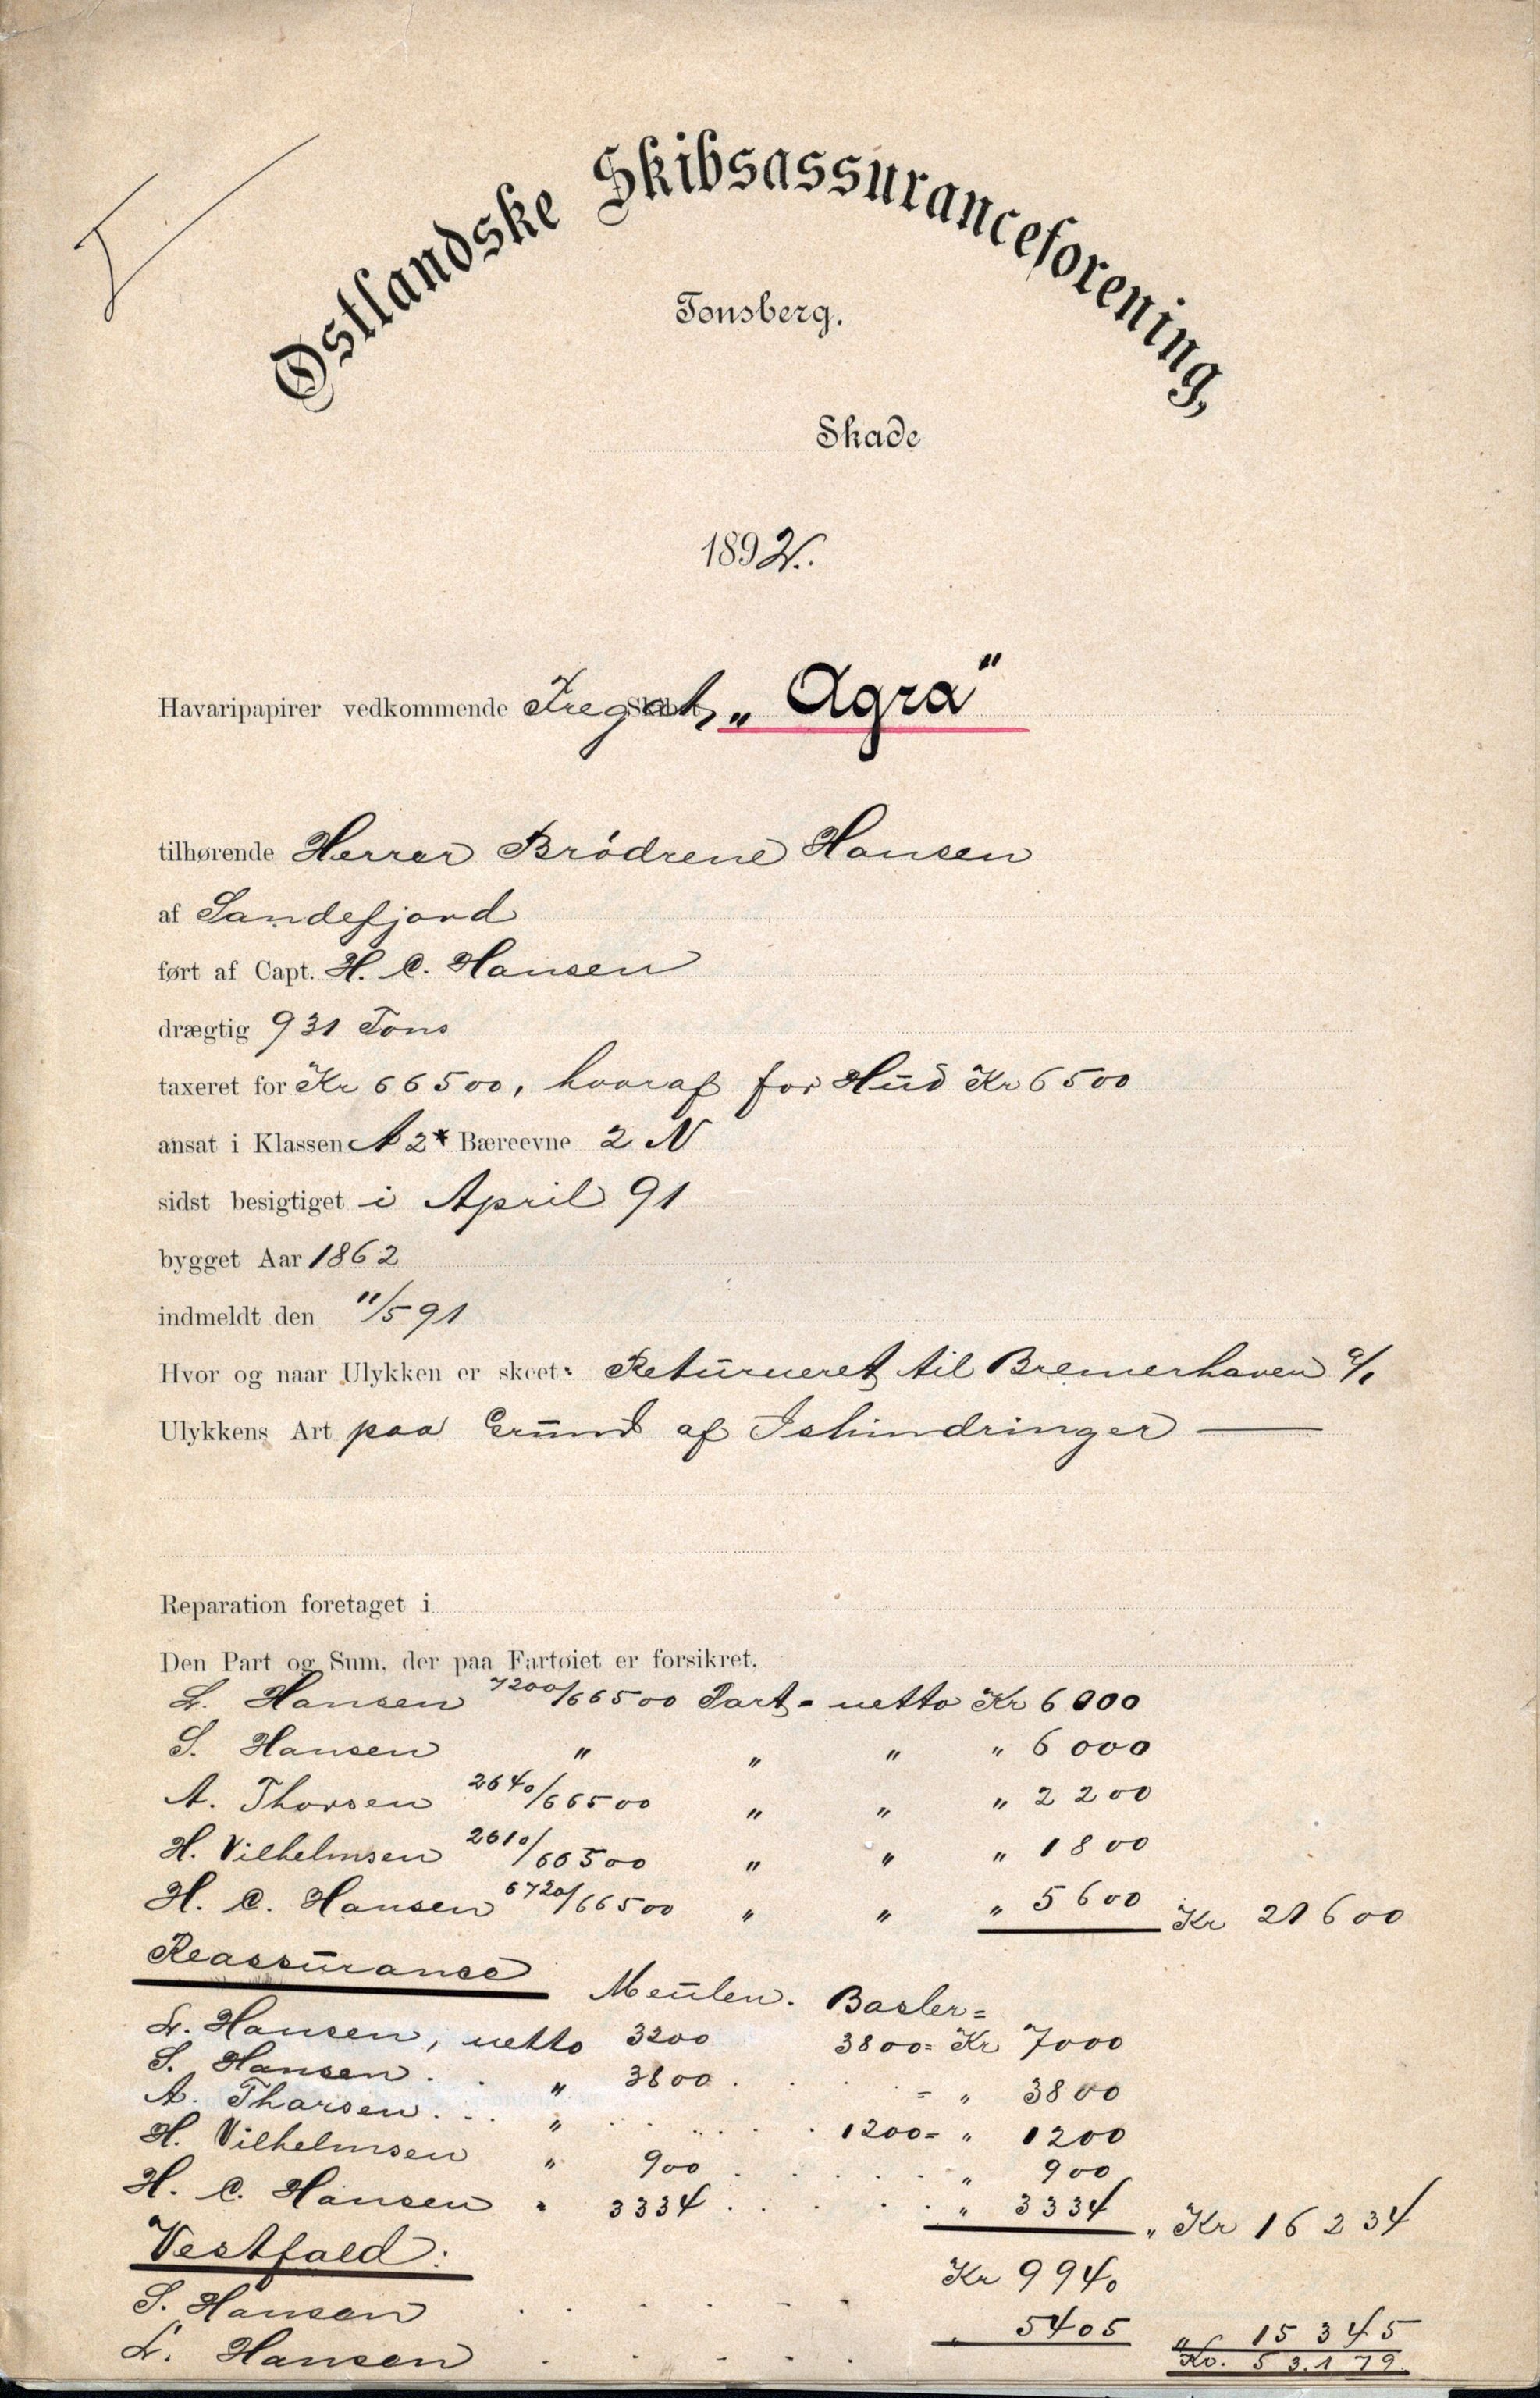 Østlandske Skibsassuranceforening,
Tønsberg.
Skade
1892.
Havaripapirer vedkommende Skibet Fregat „Agra"
tilhørende Herrer Brødrene Hansen
af Sandefjord
ført af Capt. H. C. Hansen
drægtig 931 Tons
taxeret for Kr 66500, hvoraf for Hud Kr 6500
ansat i Klassen A 2* Bæreevne 2 N
sidst besigtiget i April 91
bygget Aar 1862
indmeldt den 11/5 91
Hvor og naar Ulykken er skeet: Returneret til Bremerhaven
Ulykkens Art paa Grund af Ishindringer —
Reparation foretaget i
Den Part og Sum, der paa Fartøiet er forsikret.
L. Hansen 7200/66500 Part - netto Kr 6000
S. Hansen " " " " 6000
A. Thorsen 2640/66500 " " " 2200
H. Vilhelmsen 2610/66500 " " " 1800
H. C. Hansen 6720/66500 " " " 5600 Kr 21600
Reassurance Meulen. Basler =
L. Hansen, netto 3200 3800 = Kr 7000
S. Hansen . . " 3800 . . . = " 3800
A. Thorsen . . . " . . . . . 1200 = " 1200
H. Vilhelmsen " 900 . . . . . " 900
H. C. Hansen " 3334 . . . . . " 3334 " Kr 16234
Vestfold:
S. Hansen . . . . . . Kr 9940
L. Hansen . . . . . . " 5405 " 15345
Kr. 53.179.